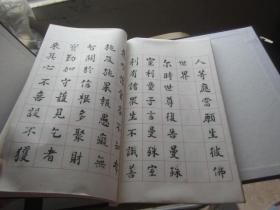 人等應當願生彼佛
世界
尔時世尊復告曼殊
室利童子言曼殊室
利有諸衆生不識善
施及施果報愚癡無
智闕於信根多聚財
寶勤加守護見乞者
來其心不喜設不獲